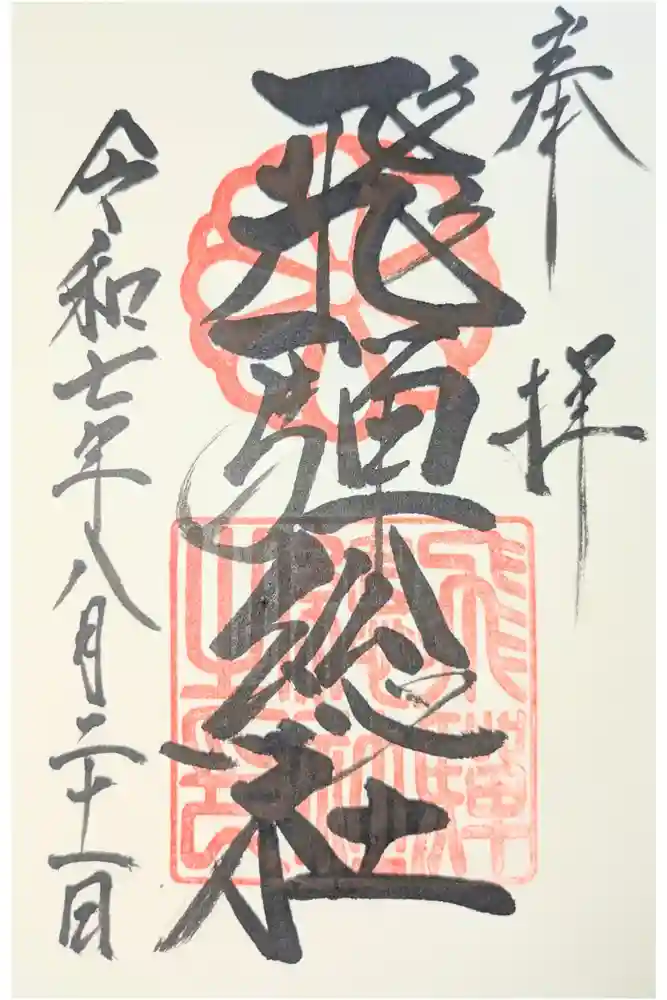 奉拝
飛騨総社
令和七年八月二十一日
飛騨總社之印